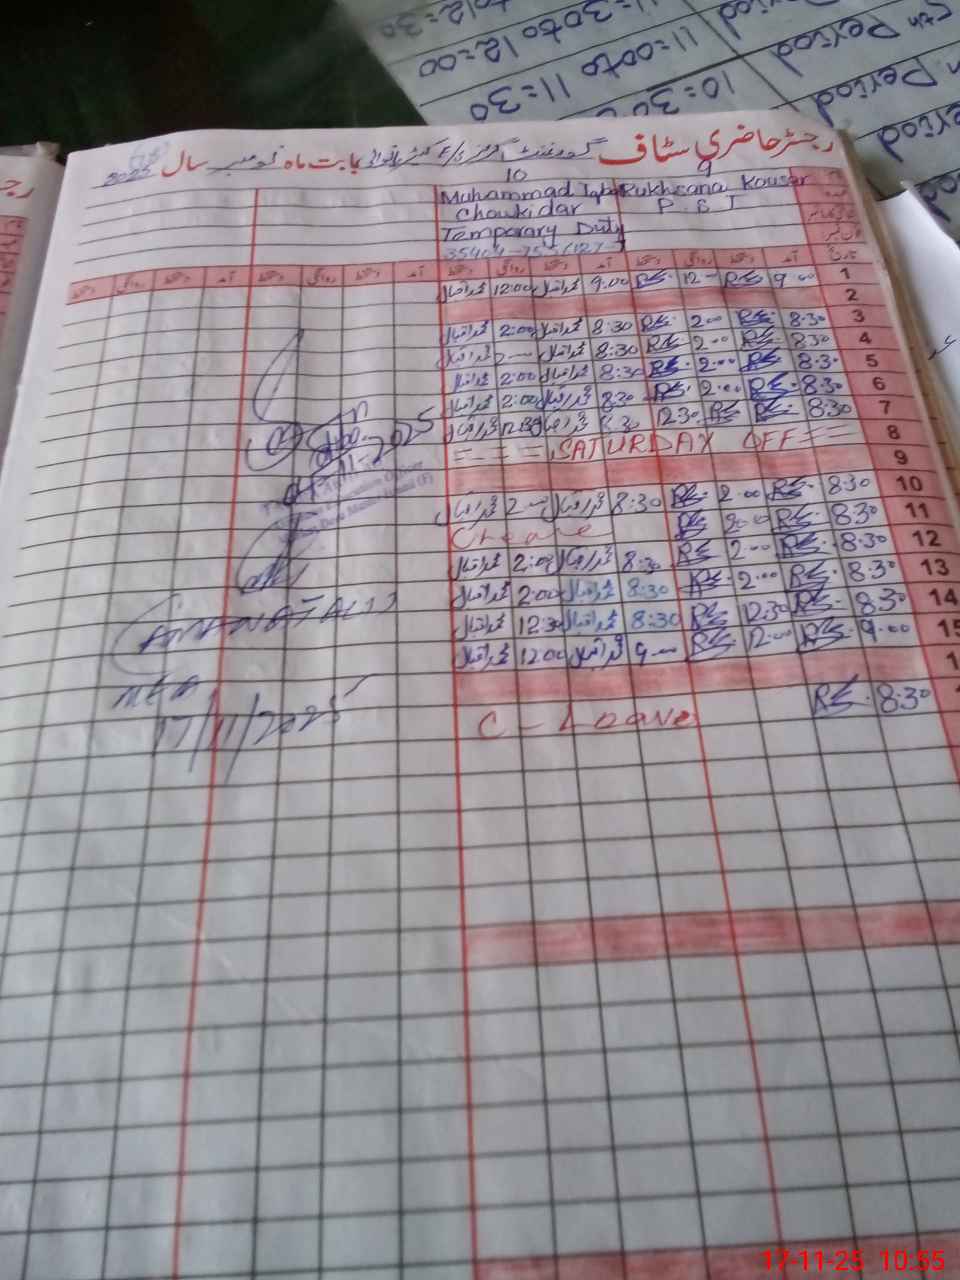 to 12=30
11=30 to 12=00 Period
11=00 to 11=30 5th Period
10=30 Period
Period
رجسٹر حاضری سٹاف گورنمنٹ گرلز E/S بابت ماہ نومبر سال 2025
10 9
Muhammad Iqbal Rukhsana Kousar
Chowkidar P.S.T
Temporary Duty
دستخط روانگی دستخط آمد دستخط روانگی دستخط آمد دستخط روانگی دستخط آمد دستخط روانگی دستخط آمد تاریخ
محمد اقبال 12:00 محمد اقبال 9:00 RK 12 RK 9:00 1
2
محمد اقبال 2:00 محمد اقبال 8:30 RK 2:00 RK 8:30 3
محمد اقبال 2 محمد اقبال 8:30 RK 2:00 RK 8:30 4
محمد اقبال 2:00 محمد اقبال 8:30 RK 2:00 RK 8:30 5
محمد اقبال 2:00 محمد اقبال 8:30 RK 2:00 RK 8:30 6
محمد اقبال 12:30 محمد اقبال 8:30 12:30 RK RK 8:30 7
= = = SATURDAY OFF = = 8
9
محمد اقبال 2 محمد اقبال 8:30 RK 2:00 RK 8:30 10
RK 2:00 RK 8:30 11
محمد اقبال 2:00 محمد اقبال 8:30 RK 2:00 RK 8:30 12
محمد اقبال 2:00 محمد اقبال 8:30 RK 2:00 RK 8:30 13
محمد اقبال 12:30 محمد اقبال 8:30 RK 12:30 RK 8:30 14
محمد اقبال 12:00 محمد اقبال 9 RK 12:00 RK 9:00 15
1
C - Leave RK 8:30
11-2025
Education Officer
(F)
AMANAT ALI
MEA
17/11/2025
17-11-25 10:55